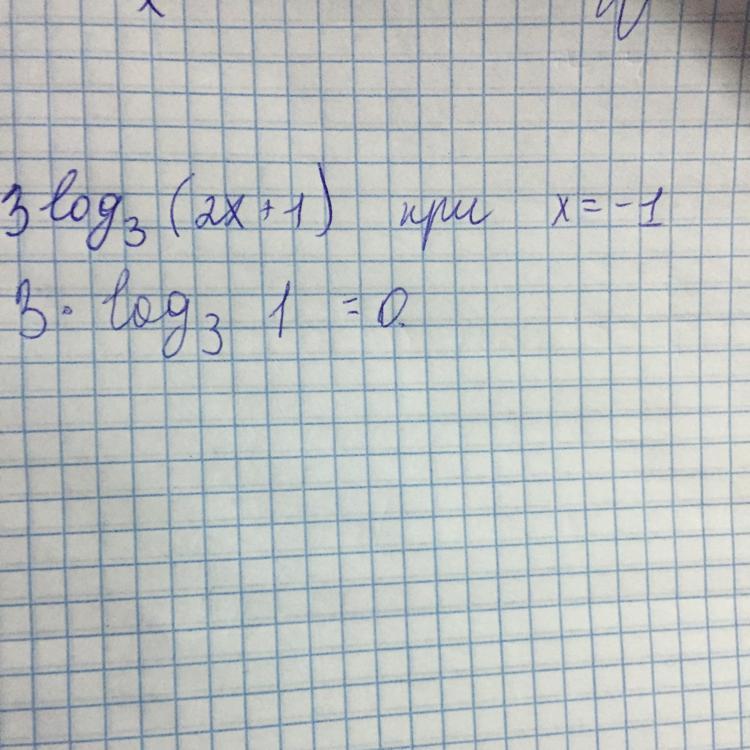 3 log₃ (2x+1) при x = -1
3 · log₃ 1 = 0.